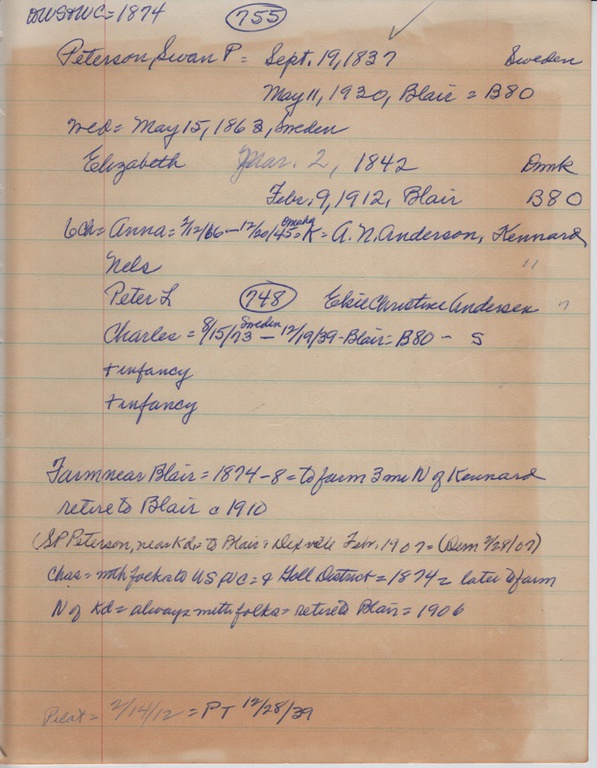 = 1874 755
Peterson, Swan P = Sept. 19, 1837 Sweden
May 11, 1930, Blair = B80
wed = May 15, 1863, Sweden
Elizabeth Mar. 2, 1842 Dmk
Febr. 9, 1912, Blair B80
6ch = Anna = 2/12/66 - 12/20/45 = Omaha K = A. N. Anderson, Kennard,
Nels "
Peter L 748 Elsie Christine Andersen "
Charles = 8/15/73 Sweden - 12/19/39 - Blair = B80 - S
+ infancy
+ infancy
Farm near Blair = 1874 - 8 = to farm 3 mi N of Kennard
retire to Blair c 1910
(SP Peterson, near Kd = to Blair = Febr. 1907 = (Dem 2/28/07)
Chas = with folks to US & WC = Goll District = 1874 = later to farm
N of Kd = always with folks = retire to Blair = 1906
Pilot = 2/14/12 = PT 12/28/39